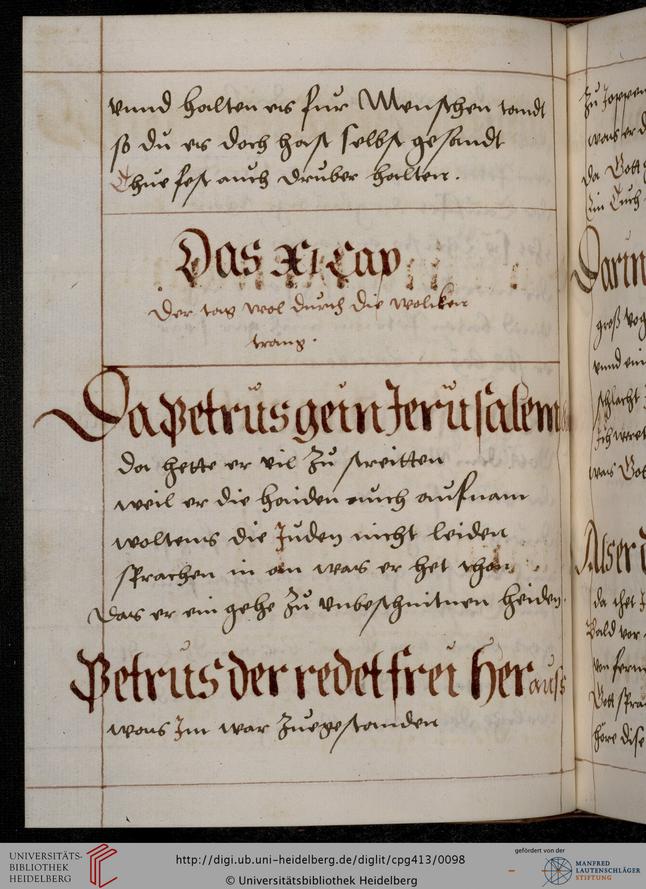 vnnd halten es fur Menschen tandt
so du es doch hast selbst gesandt
Thue fest auch druber halten.
Das XI Cap
Der tag wol durch die wolcken
trang.
Da Petrus gein Jerusalem
da hette er vil zu streitten
weil er die haiden auch aufnam
woltens die Juden nicht leiden
sprachen in an was er het
Das er ein gehe zu vnbeschnitnen heiden.
Petrus der redet frei herauss
wons Im war zuegestanden
zu
was er d
da Gott
Ein Tuch
Darin
groß
vnnd ein
schlacht
Ich
was Got
Als er
da
Bald
von
Gott spra
höre dise
UNIVERSITÄTS-
BIBLIOTHEK
HEIDELBERG
http://digi.ub.uni-heidelberg.de/diglit/cpg413/0098
© Universitätsbibliothek Heidelberg
gefördert von der
MANFRED
LAUTENSCHLÄGER
STIFTUNG